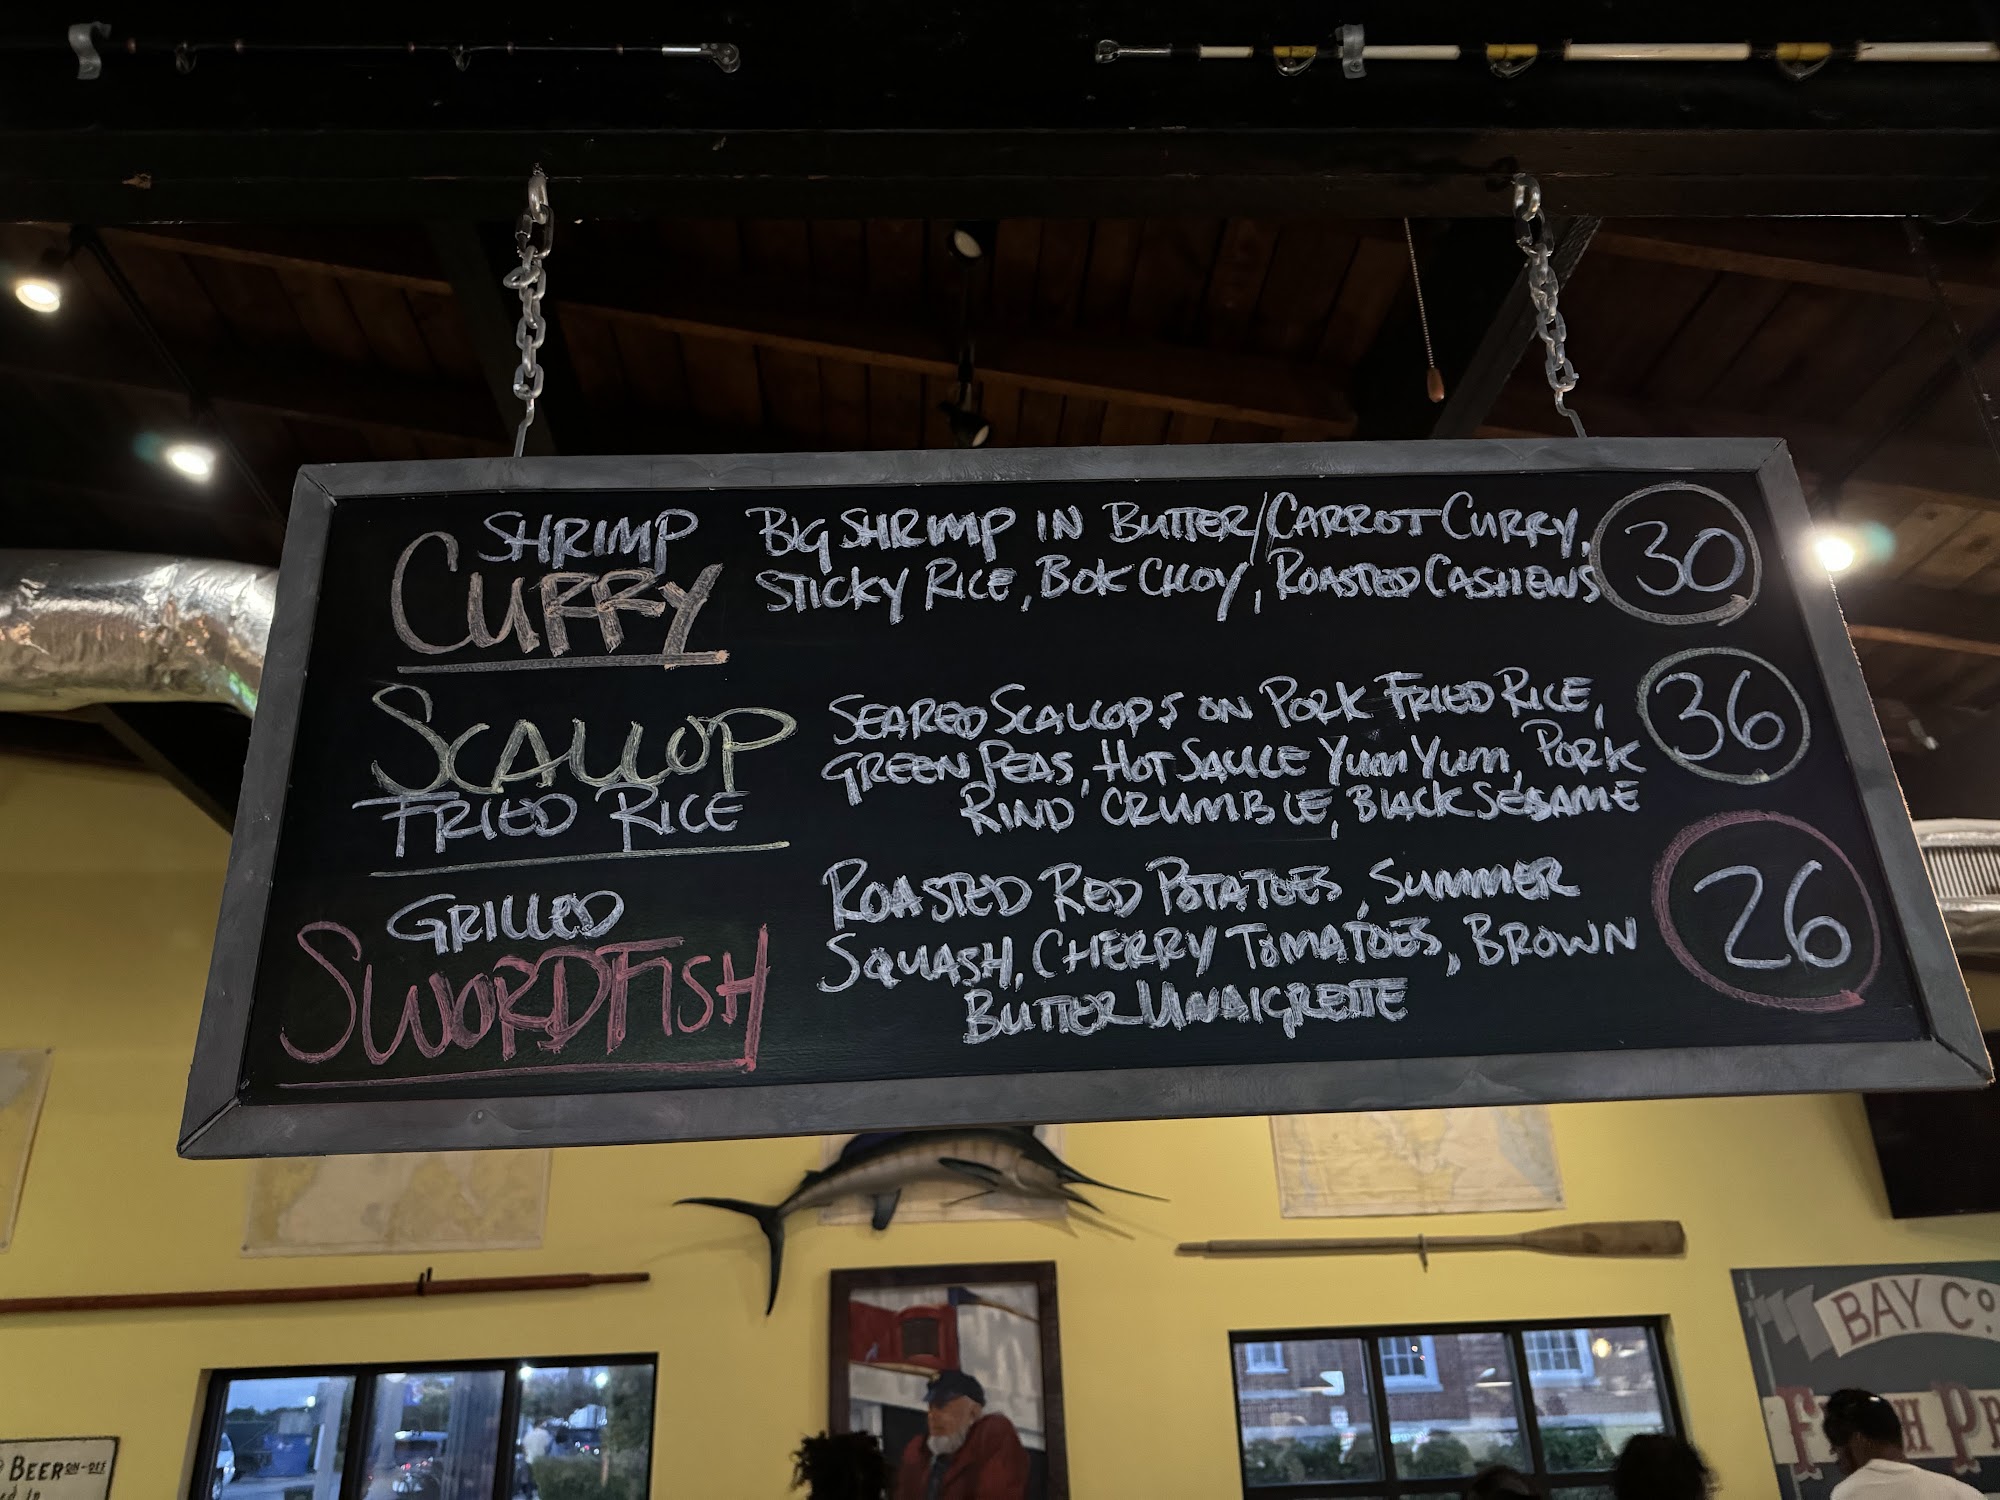 SHRIMP
CURRY
BIG SHRIMP IN BUTTER/CARROT CURRY,
STICKY RICE, BOK CHOY, ROASTED CASHEWS
30
SCALLOP
FRIED RICE
SEARED SCALLOPS ON PORK FRIED RICE,
GREEN PEAS, HOT SAUCE YUM YUM, PORK
RIND CRUMBLE, BLACK SESAME
36
GRILLED
SWORDFISH
ROASTED RED POTATOES, SUMMER
SQUASH, CHERRY TOMATOES, BROWN
BUTTER VINAIGRETTE
26
BAY Co.
BEER ON-OFF